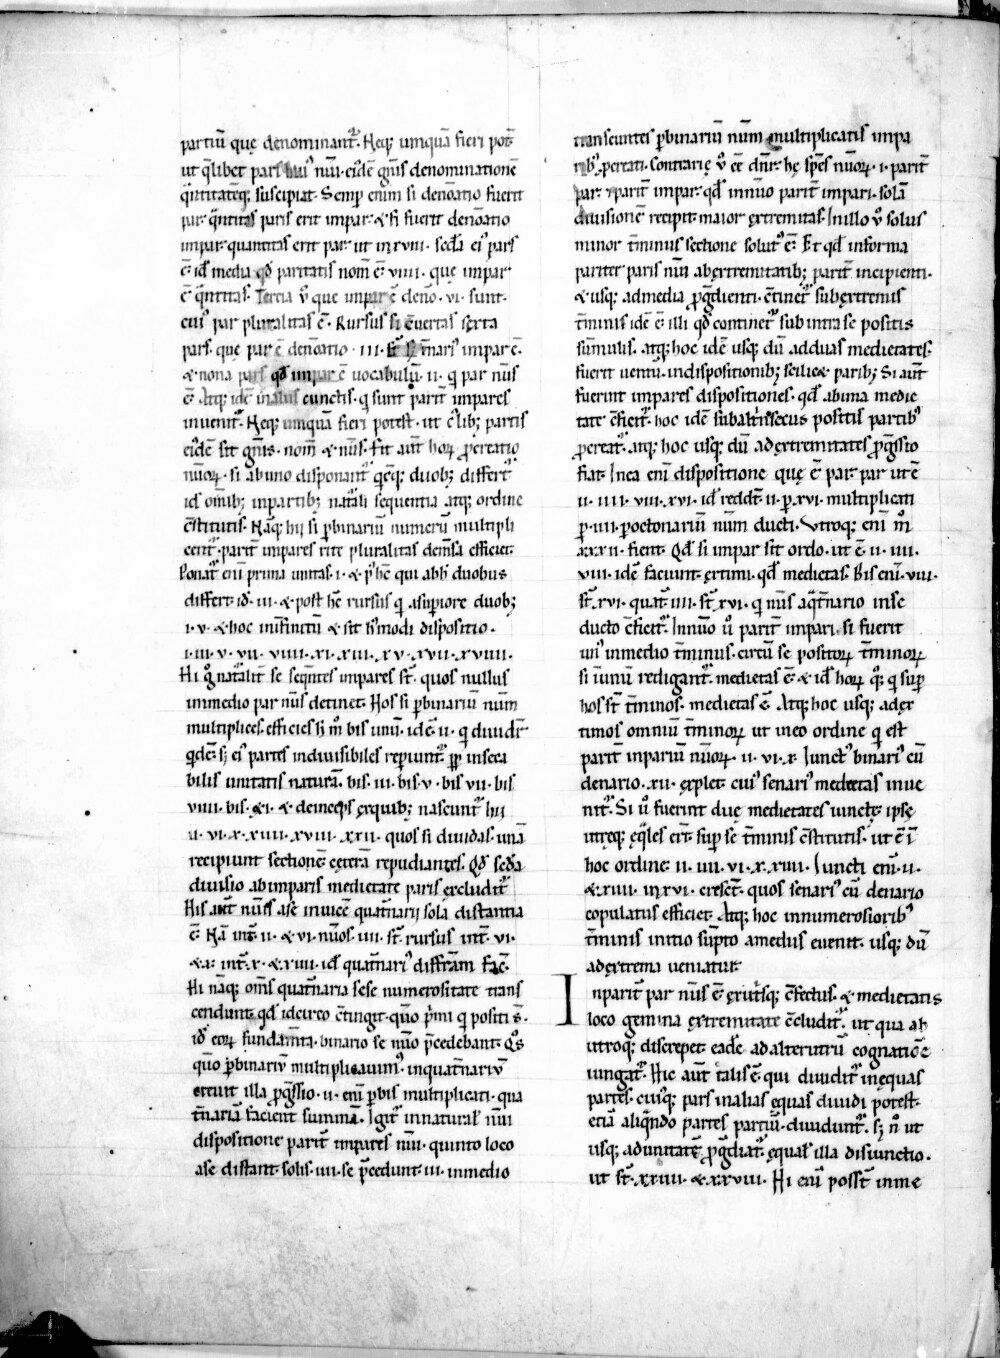 partiū que denominant᷑. Neq; umquā fieri pot̄
ut q̄libet pars hui᷒ nūi eidē gn̄is denominationē
q̄ntitatēq; suscipiat. Semp enim si denōatio fuerit
par q̄ntitas paris erit impar. & si fuerit denōatio
impar quantitas erit par. ut in xviii. secd̄a ei᷒ pars
ē id̄ media qd̄ paritatis nom̄ ē. viiii. que impar
ē q̄ntitas. Tercia v̊ que impar ē denō. vi. sunt.
cui᷒ par pluralitas ē. Rursus si ēvertas sexta
pars. que par ē denōatio. iii. t̄nari᷒ impar ē.
& nona pars qd̄ impar ē vocabulū. ii. q par nūs
ē. Atq; idē in aliis cunctis. q sunt parit̄ impares
invenit᷑. Neq; umquā fieri potest. ut c̄libꝫ partis
eidē sit gn̄is. nom̄ & nūs. fit aut̄ hoꝝ ꝓcreatio
nūoꝝ. si ab uno disponant᷑ q̄cq; duobꝫ differt᷑
id̄ om̄ibꝫ inpartibꝫ nat̄ali sequentia atq; ordine
c̄stitutis. Nāq; hij si ꝑbinariū numerū multipli
cent᷑. parit̄ impares rite pluralitas dem̄sa efficiet.
Ponat᷑ eni̅ prima unitas. i. & p᷒ hc̄ qui abh̄ duobus
differt. id̄. iii. & post hc̄ rursus q asupiore duobꝫ
i. v. & hoc ininfinitū & sit h᷒modi dispositio.
i. iii. v. vii. viiii. xi. xiii. xv. xvii. xviiii.
Hi g̊ nat᷑alit̄ se seqn̄tes impares st̄. quos nullus
inmedio par nūs detinet. Hos si ꝑbinariū nūm
multiplices. efficies h̄ m̊ bis unū. idē. ii. q dividit᷑
qdē. sꝫ ei᷒ partes indivisibiles repiunt᷑. ꝓp̄ inseca
bilis unitatis naturā. bis. iii. bis. v. bis vii. bis
viiii. bis. xi. & deinceps exquibꝫ nascunt᷑ hij
ii. vi. x. xiiii. xviii. xxii. quos si dividas. unā
recipiunt sectionē cęterā repudiantes. Qd̄ secd̄a
divisio ab imparis medietate paris excludit᷑
His aut̄ nūis ase invicē quat̄narij sola distantia
ē. Nā int̄. ii. & vi. nūos. iiii. st̄. rursus int̄. vi.
& x. int̄. x. & xiiii. id̄ quat̄nari᷒ diffr̄am fac̄.
Hi nāq; om̄s quat̄naria sese numerositate trans
cendunt. qd̄ idcirco c̄tingit. quō p̄mi q positi s̄.
id̄ eoꝝ fundam̄ta. binario se nūo p̄cedebant. Qo᷒
quō ꝑbinariv̄ multiplicavim᷒. inquat̄nariv̄
crevit illa ꝓg̅ssio. ii. eni̅ ꝑbis multiplicati. qua
t̄nariā facient summā. Igit᷑ innaturał nūi
dispositione parit̄ impares nūi. quinto loco
ase distant. solis. iiii. se p̄cedunt. iii. inmedio
transeuntes ꝑbinariū nūm multiplicatis impa
rib᷒ ꝓcreati. Contrarię v̊ eē dn̄r hę spēs nūoꝝ. i. parit̄
par. & parit̄ impar. qd̄ innūo parit̄ impari. solā
divisionē recipit. maior extremitas. Inillo v̊ solus
minor t̄minus sectione solut᷒ ē. Et qd̄ informa
pariter paris nūi abextremitatibꝫ parit̄ incipienti.
& usq; admedia ꝓg̅dienti. c̄tinet᷑ sub extremis
t̄minis idē ē illi qd̄ continet᷑ sub intra se positis
sūmulis. atq; hoc idē usq; dū adduas medietates.
fuerit ventū. indispositionibꝫ scilicet paribꝫ Si aut̄
fuerint impares dispositiones. qd̄ abuna medie
tate c̄ficit᷑. hoc idē subaltrinsecus positis partib᷒
ꝓcreat᷑. atq; hoc usq; dū adextremitates ꝓg̅ssio
fiat. Inea eni̅ dispositione que ē par. par ut ē
ii. iiii. viii. xvi. id̄ reddt̄. ii. ꝑ xvi. multiplicati
ꝑ. iiii. ꝑoctonariū nūm ducti. Utroq; eni̅ m̊
xxxii. fient. Qd̄ si impar sit ordo. ut ē. ii. iiii.
viii. idē faciunt. extimi. qd̄ medietas. Bis eni̅. viii.
st̄. xvi. quat᷑. iiii. st̄. xvi. q nūs aq̄t̄nario inse
ducto c̄ficit᷑. Innūo v̊ parit̄ impari. si fuerit
un᷒ inmedio t̄minus. circū se positoꝝ t̄minoꝝ
si iunū redigant᷑. medietas ē. & id̄ hoꝝ q; q sup
hos st̄ t̄minos. medietas ē. Atq; hoc usq; adex
timos omniū t̄minoꝝ ut ineo ordine q est
parit̄ inpariū nūoꝝ. ii. vi. x. Iunct᷒ binari᷒ cū
denario. xii. explet. cui᷒ senari᷒ medietas inve
nit᷑. Si v̊ fuerint due medietates iuncte. ipsę
utreq; ęq̄les ert̄. sup se t̄minis c̄stitutis. ut ē i̅
hoc ordine. ii. iiii. vi. x. xiiii. Iuncti eni̅. ii.
& xiiii. in xvi. cresct̄. quos senari᷒ cū denario
copulatus efficiet. Atq; hoc innumerosiorib᷒
t̄minis initio sūpto amediis evenit. usq; dū
adextrema veniatur.
Inparit̄ par nūs ē exutisq; c̄fectus. & medietatis
loco gemina extremitate c̄cludit᷑. ut qua ab
utroq; discrepet. eadē adalterutrū cognatiōē
iungat᷑. Hic aut̄ talis ē. qui dividit᷑ inęquas
partes. cuisq; pars inalias ęquas dividi potest.
etiā aliqn̄do partes partiū. dividunt᷑. sꝫ n̊ ut
usq; adunitatē ꝓg̅diat᷑. ęqualł illa disiunctio.
ut st̄. xxiiii. & xxviii. Hi eni̅ posst̄ inme